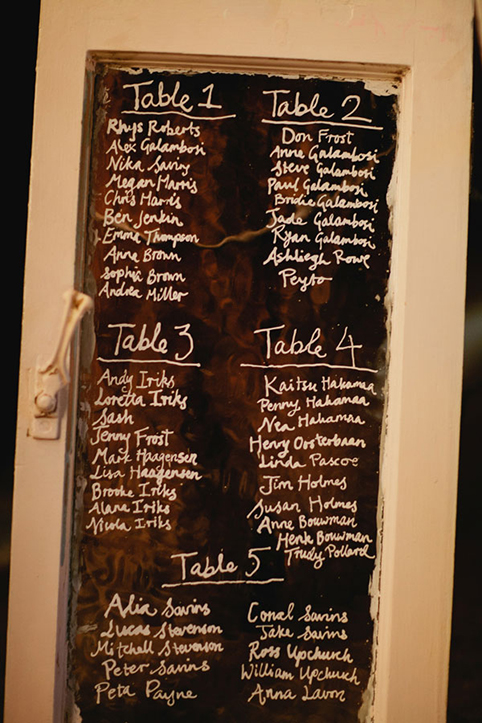 Table 1
Rhys Roberts
Alex Galambosi
Nika Saviny
Megan Harris
Chris Harris
Ben Jenkin
Emma Thompson
Anna Brown
Sophie Brown
Andrea Miller
Table 2
Don Frost
Anne Galambosi
Steve Galambosi
Paul Galambosi
Bridie Galambosi
Jade Galambosi
Ryan Galambosi
Ashliegh Rowe
Peyto
Table 3
Andy Iriks
Loretta Iriks
Sash
Jenny Frost
Mark Haagensen
Lisa Haagensen
Brooke Iriks
Alana Iriks
Nicola Iriks
Table 4
Kaitsu Hakamaa
Penny Hakamaa
Nea Hakamaa
Henry Oosterbaan
Linda Pascoe
Jim Holmes
Susan Holmes
Anne Bouwman
Henk Bouwman
Trudy Pollard
Table 5
Alia Savins
Lucas Stevenson
Mitchell Stevenson
Peter Savins
Peta Payne
Conal Savins
Jake Savins
Ross Upchurch
William Upchurch
Anna Lavon